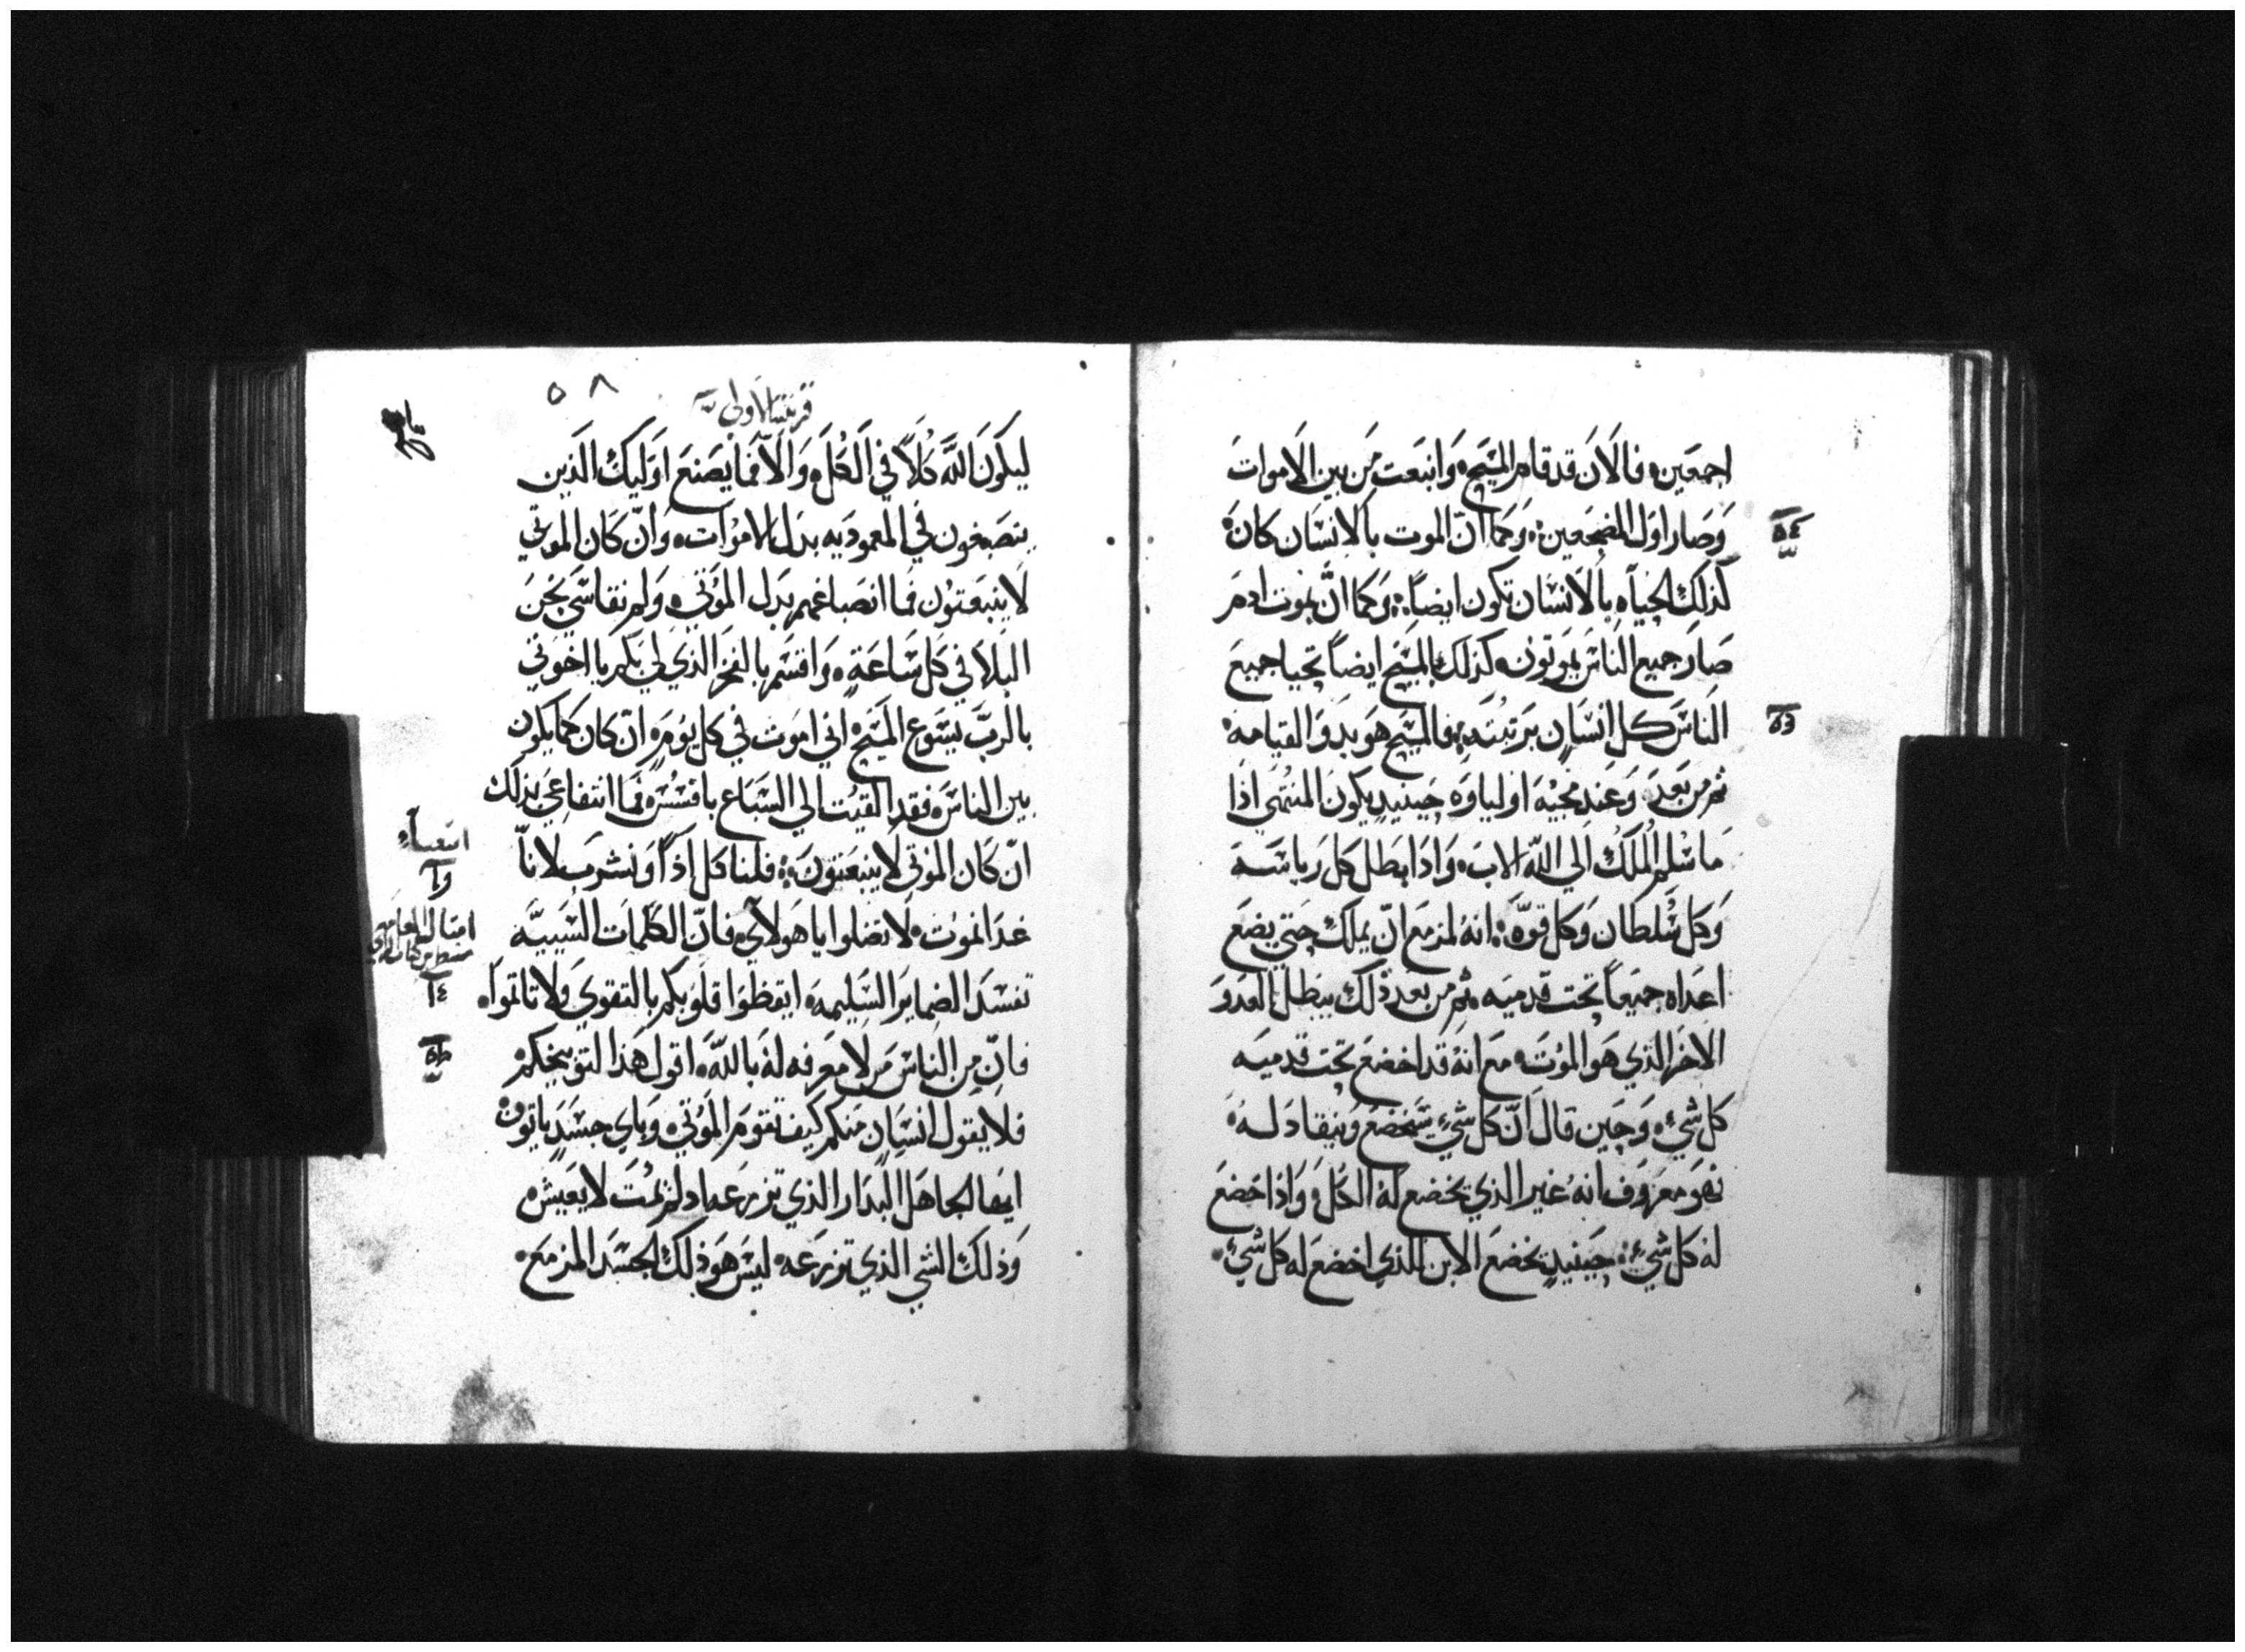 اجمعين ه فالان قد قام المسيح ه وانبعت من بين الاموات
وصار اول المضجعين ه وكما ان الموت بالانسان كان ه
كذلك الحياه بالانسان تكون ايضاً ه وكما ان بموت ادم
صار جميع الناس يموتون ه كذلك بالمسيح ايضاً تحيا جميع
الناس كل انسان برتبته ه فالمسيح هو بدو القيامه
ثم من بعد ه وعند مجيه اولياوه حينيدٍ يكون المنتهي اذا
ما سلم الملك الي الله الاب ه واذا بطل كل رياسه
وكل سلطان وكل قوه ه انه لمزمع ان يملك حتي يضع
اعداه جميعاً تحت قدميه ثم من بعد ذلك يبطل العدو
الاخر الذي هو الموت ه مع انه قد اخضع تحت قدميه
كل شيء ه وحين قال ان كل شيء يتخضع وينقاد له
فهو معروف انه غير الذي تخضع له الكل ه واذا خضع
له كل شيء ه حينيدٍ تخضع الابن للذي اخضع له كل شيء ه
٥٤
٥٨
قرنتيه الاولي
ليكون الله كلاً في الكل ه والا فما يصنع اوليك الذين
ينصبغون في المعموديه بدل الاموات ه وان كان الموتي
لا ينبعتون فما انصباغهم بدل الموتي ه ولم نقاسي نحن
البلا في كل ساعة ه واقسم بالفخر الذي لي بكم يا اخوتي
بالرب يسوع المسيح ه اني اموت في كل يوم ه ان كان كما يكون
بين الناس ه فقد القيت الي السباع بافسس ه فما انتفاعي بذلك
ان كان الموتي لا ينبعتون ه فلناكل اذاً ونشرب لانا
غدا نموت ه لا تضلوا يا هولاي ه فان الكلمات السييه
تفسد الضماير السليمه ه ايقظوا قلوبكم بالتقوي ولا تاتموا ه
فان من الناس من لا معرفه له بالله ه اقول هذا لتوبيخكم ه
فلا يقول انسان منكم كيف تقوم الموتي ه وباي جسدٍ ياتون ه
ايها الجاهل البدار الذي تزرعه اد لم يمت لا يعيش ه
وذلك الشي الذي تزرعه ليس هو ذلك الجسد المزمع ه
اشعيا